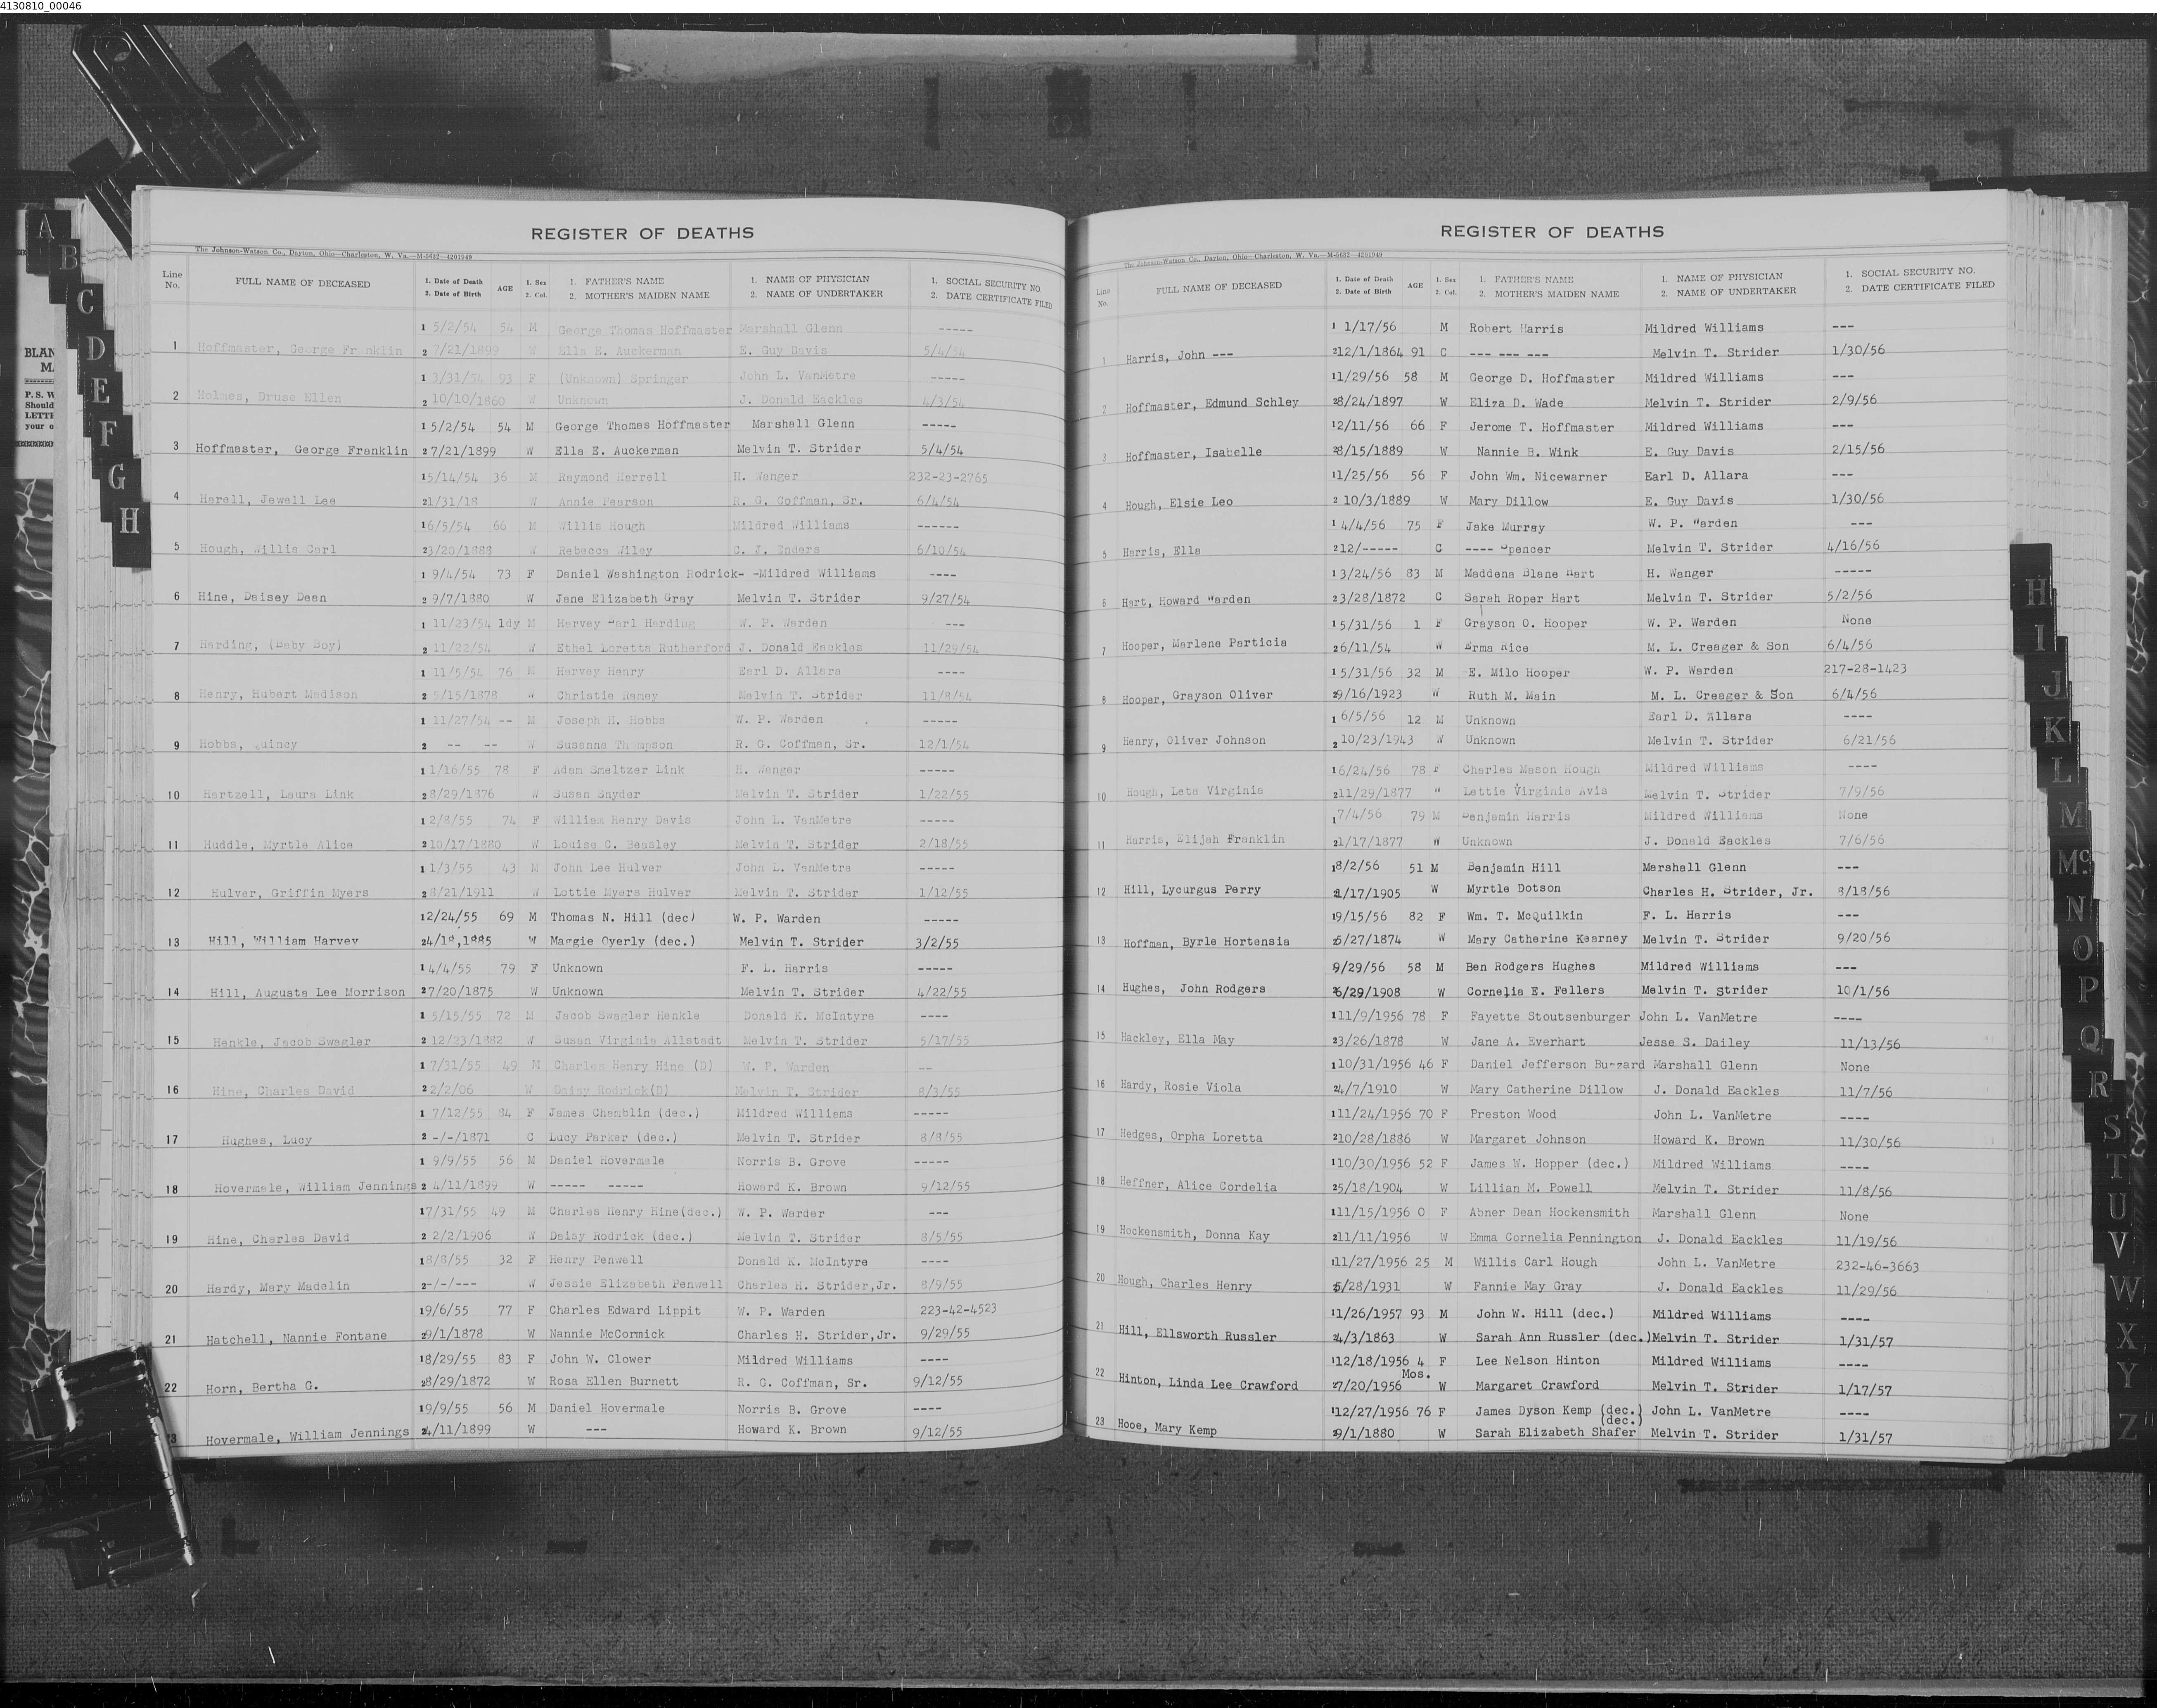 4130810_00046
REGISTER OF DEATHS
The Johnson-Watson Co., Dayton, Ohio—Charleston, W. Va.—M-5632—4201949
Line No. FULL NAME OF DECEASED 1. Date of Death 2. Date of Birth AGE 1. Sex 2. Col. 1. FATHER'S NAME 2. MOTHER'S MAIDEN NAME 1. NAME OF PHYSICIAN 2. NAME OF UNDERTAKER 1. SOCIAL SECURITY NO. 2. DATE CERTIFICATE FILED
1 5/2/54 54 M George Thomas Hoffmaster Marshall Glenn -----
1 Hoffmaster, George Fr nklin 2 7/21/1899 W Ella E. Auckerman E. Guy Davis 5/4/54
1 3/31/54 93 F (Unknown) Springer John L. VanMetre -----
2 Holmes, Druse Ellen 2 10/10/1860 W Unknown J. Donald Eackles 4/3/54
1 5/2/54 54 M George Thomas Hoffmaster Marshall Glenn -----
3 Hoffmaster, George Franklin 2 7/21/1899 W Ella E. Auckerman Melvin T. Strider 5/4/54
1 5/14/54 36 M Raymond Harrell H. Wanger 232-23-2765
4 Harell, Jewell Lee 2 1/31/18 W Annie Pearson R. G. Coffman, Sr. 6/4/54
1 6/5/54 66 M Willis Hough Mildred Williams ------
5 Hough, Willis Carl 2 3/20/1888 W Rebecca Wiley C. J. Enders 6/10/54
1 9/4/54 73 F Daniel Washington Rodrick- -Mildred Williams ----
6 Hine, Daisey Dean 2 9/7/1880 W Jane Elizabeth Gray Melvin T. Strider 9/27/54
1 11/23/54 1dy M Harvey Earl Harding W. P. Warden ---
7 Harding, (Baby Boy) 2 11/22/54 W Ethel Loretta Rutherford J. Donald Eackles 11/29/54
1 11/5/54 76 M Harvey Henry Earl D. Allara ----
8 Henry, Hubert Madison 2 5/15/1878 W Christie Ramey Melvin T. Strider 11/8/54
1 11/27/54 -- M Joseph H. Hobbs W. P. Warden -----
9 Hobbs, Quincy 2 -- -- W Susanne Thompson R. G. Coffman, Sr. 12/1/54
1 1/16/55 78 F Adam Smeltzer Link H. Wanger -----
10 Hartzell, Laura Link 2 8/29/1876 W Susan Snyder Melvin T. Strider 1/22/55
1 2/8/55 74 F William Henry Davis John L. VanMetre -----
11 Huddle, Myrtle Alice 2 10/17/1880 W Louise C. Beasley Melvin T. Strider 2/18/55
1 1/3/55 43 M John Lee Hulver John L. VanMetre -----
12 Hulver, Griffin Myers 2 8/21/1911 W Lottie Myers Hulver Melvin T. Strider 1/12/55
1 2/24/55 69 M Thomas N. Hill (dec) W. P. Warden -----
13 Hill, William Harvey 2 4/18,1885 W Margie Oyerly (dec.) Melvin T. Strider 3/2/55
1 4/4/55 79 F Unknown F. L. Harris -----
14 Hill, Augusta Lee Morrison 2 7/20/1875 W Unknown Melvin T. Strider 4/22/55
1 5/15/55 72 M Jacob Swagler Henkle Donald K. McIntyre ----
15 Henkle, Jacob Swagler 2 12/23/1882 W Susan Virginia Allstadt Melvin T. Strider 5/17/55
1 7/31/55 49 M Charles Henry Hine (D) W. P. Warden --
16 Hine, Charles David 2 2/2/06 W Daisy Rodrick(D) Melvin T. Strider 8/3/55
1 7/12/55 84 F James Chamblin (dec.) Mildred Williams -----
17 Hughes, Lucy 2 -/-/1871 C Lucy Parker (dec.) Melvin T. Strider 8/8/55
1 9/9/55 56 M Daniel Hovermale Norris B. Grove -----
18 Hovermale, William Jennings 2 4/11/1899 W ----- ----- Howard K. Brown 9/12/55
1 7/31/55 49 M Charles Henry Hine(dec.) W. P. Warder ---
19 Hine, Charles David 2 2/2/1906 W Daisy Rodrick (dec.) Melvin T. Strider 8/5/55
1 8/8/55 32 F Henry Penwell Donald K. McIntyre ----
20 Hardy, Mary Madelin 2 -/-/--- W Jessie Elizabeth Penwell Charles H. Strider,Jr. 8/9/55
1 9/6/55 77 F Charles Edward Lippit W. P. Warden 223-42-4523
21 Hatchell, Nannie Fontane 2 9/1/1878 W Nannie McCormick Charles H. Strider,Jr. 9/29/55
1 8/29/55 83 F John W. Clower Mildred Williams ----
22 Horn, Bertha G. 2 8/29/1872 W Rosa Ellen Burnett R. G. Coffman, Sr. 9/12/55
1 9/9/55 56 M Daniel Hovermale Norris B. Grove ----
23 Hovermale, William Jennings 2 4/11/1899 W --- Howard K. Brown 9/12/55
REGISTER OF DEATHS
The Johnson-Watson Co., Dayton, Ohio—Charleston, W. Va.—M-5632—4201949
Line No. FULL NAME OF DECEASED 1. Date of Death 2. Date of Birth AGE 1. Sex 2. Col. 1. FATHER'S NAME 2. MOTHER'S MAIDEN NAME 1. NAME OF PHYSICIAN 2. NAME OF UNDERTAKER 1. SOCIAL SECURITY NO. 2. DATE CERTIFICATE FILED
1 1/17/56 M Robert Harris Mildred Williams ---
1 Harris, John --- 2 12/1/1864 91 C --- --- --- Melvin T. Strider 1/30/56
1 1/29/56 58 M George D. Hoffmaster Mildred Williams ---
2 Hoffmaster, Edmund Schley 2 8/24/1897 W Eliza D. Wade Melvin T. Strider 2/9/56
1 2/11/56 66 F Jerome T. Hoffmaster Mildred Williams ---
3 Hoffmaster, Isabelle 2 8/15/1889 W Nannie B. Wink E. Guy Davis 2/15/56
1 1/25/56 56 F John Wm. Nicewarner Earl D. Allara ---
4 Hough, Elsie Leo 2 10/3/1889 W Mary Dillow E. Guy Davis 1/30/56
1 4/4/56 75 F Jake Murray W. P. Warden ---
5 Harris, Ella 2 12/----- C ---- Spencer Melvin T. Strider 4/16/56
1 3/24/56 83 M Maddena Blane Hart H. Wanger -----
6 Hart, Howard Warden 2 3/28/1872 C Sarah Roper Hart Melvin T. Strider 5/2/56
1 5/31/56 1 F Grayson O. Hooper W. P. Warden None
7 Hooper, Marlene Particia 2 6/11/54 W Erma Rice M. L. Creager & Son 6/4/56
1 5/31/56 32 M E. Milo Hooper W. P. Warden 217-28-1423
8 Hooper, Grayson Oliver 2 9/16/1923 W Ruth M. Main M. L. Creager & Son 6/4/56
1 6/5/56 12 M Unknown Earl D. Allara ----
9 Henry, Oliver Johnson 2 10/23/1943 W Unknown Melvin T. Strider 6/21/56
1 6/24/56 78 F Charles Mason Hough Mildred Williams ----
10 Hough, Leta Virginia 2 11/29/1877 W Lettie Virginia Avis Melvin T. Strider 7/9/56
1 7/4/56 79 M Benjamin Harris Mildred Williams None
11 Harris, Elijah Franklin 2 1/17/1877 W Unknown J. Donald Eackles 7/6/56
1 8/2/56 51 M Benjamin Hill Marshall Glenn ---
12 Hill, Lycurgus Perry 2 1/17/1905 W Myrtle Dotson Charles H. Strider, Jr. 8/18/56
1 9/15/56 82 F Wm. T. McQuilkin F. L. Harris ---
13 Hoffman, Byrle Hortensia 2 5/27/1874 W Mary Catherine Kearney Melvin T. Strider 9/20/56
9/29/56 58 M Ben Rodgers Hughes Mildred Williams ---
14 Hughes, John Rodgers 2 6/29/1908 W Cornelia E. Fellers Melvin T. Strider 10/1/56
1 11/9/1956 78 F Fayette Stoutsenburger John L. VanMetre ----
15 Hackley, Ella May 2 3/26/1878 W Jane A. Everhart Jesse S. Dailey 11/13/56
1 10/31/1956 46 F Daniel Jefferson Buzzard Marshall Glenn None
16 Hardy, Rosie Viola 2 4/7/1910 W Mary Catherine Dillow J. Donald Eackles 11/7/56
1 11/24/1956 70 F Preston Wood John L. VanMetre ----
17 Hedges, Orpha Loretta 2 10/28/1886 W Margaret Johnson Howard K. Brown 11/30/56
1 10/30/1956 52 F James W. Hopper (dec.) Mildred Williams ----
18 Heffner, Alice Cordelia 2 5/18/1904 W Lillian M. Powell Melvin T. Strider 11/8/56
1 11/15/1956 0 F Abner Dean Hockensmith Marshall Glenn None
19 Hockensmith, Donna Kay 2 11/11/1956 W Emma Cornelia Pennington J. Donald Eackles 11/19/56
1 11/27/1956 25 M Willis Carl Hough John L. VanMetre 232-46-3663
20 Hough, Charles Henry 2 5/28/1931 W Fannie May Gray J. Donald Eackles 11/29/56
1 1/26/1957 93 M John W. Hill (dec.) Mildred Williams ----
21 Hill, Ellsworth Russler 2 4/3/1863 W Sarah Ann Russler (dec.) Melvin T. Strider 1/31/57
1 12/18/1956 4 Mos. F Lee Nelson Hinton Mildred Williams ----
22 Hinton, Linda Lee Crawford 2 7/20/1956 W Margaret Crawford Melvin T. Strider 1/17/57
1 12/27/1956 76 F James Dyson Kemp (dec.) John L. VanMetre ----
(dec.)
23 Hooe, Mary Kemp 2 9/1/1880 W Sarah Elizabeth Shafer Melvin T. Strider 1/31/57
A
B
C
D
E
F
G
H
BLAN
P. S. W
Should
LETTE
your o
H
I
J
K
L
M
Mc
N
O
P
Q
R
S
T
U
V
W
X
Y
Z